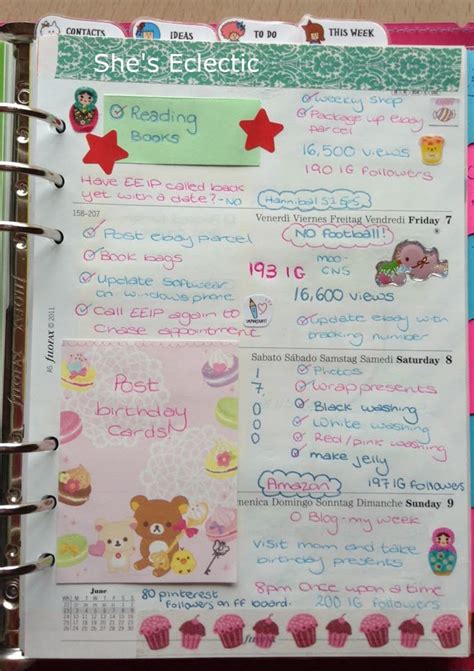 CONTACTS
IDEAS
TO DO
THIS WEEK
She's Eclectic
Reading
Books
weekly shop
Package up ebay
parcel
16,500 views
190 IG followers
Have EEIP called back
yet with a date? - NO
Hannibal
158-207
Venerdì Viernes Freitag Vendredi Friday 7
Post ebay parcel
Book bags
Update softwear
on windows phone
Call EEIP again to
chase appointment
NO Football!
193 IG
moo-
CNS
16,600 views
update ebay with
tracking number
filofax © 2011
Sabato Sábado Samstag Samedi Saturday 8
1 Photos
7 wrap presents
0 Black washing
0 White washing
0 Red/pink washing
make jelly
Amazon
197 IG followers
Post
birthday
cards!
menica Domingo Sonntag Dimanche Sunday 9
0 Blog - my week
visit mom and take
birthday presents
8pm Once upon a time
200 IG followers
June
80 pinterest
followers on ff board.
filofax